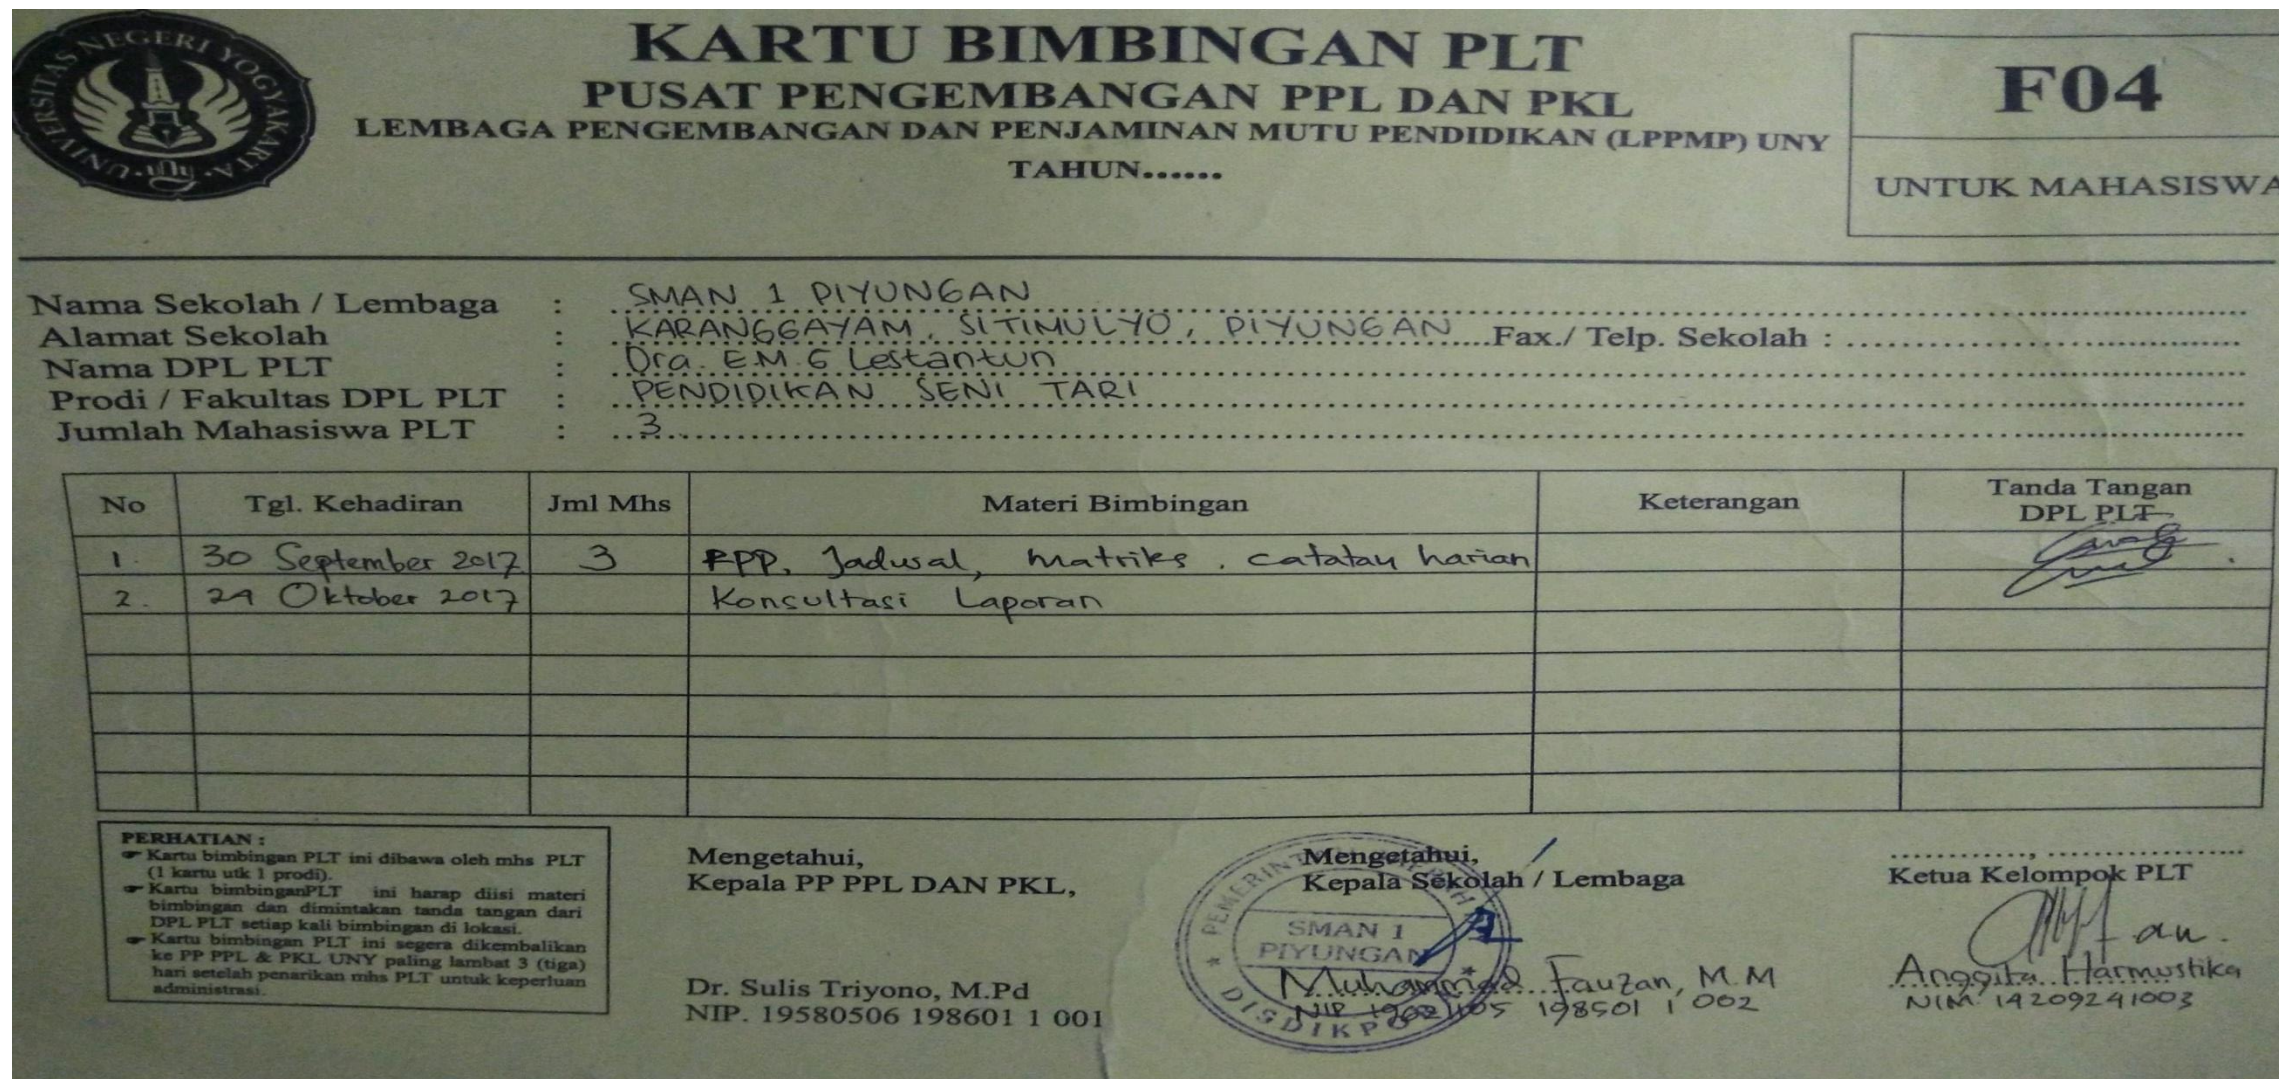 UNIVERSITAS NEGERI YOGYAKARTA
UNY
KARTU BIMBINGAN PLT
PUSAT PENGEMBANGAN PPL DAN PKL
LEMBAGA PENGEMBANGAN DAN PENJAMINAN MUTU PENDIDIKAN (LPPMP) UNY
TAHUN......
F04
UNTUK MAHASISWA
Nama Sekolah / Lembaga : SMAN 1 PIYUNGAN
Alamat Sekolah : KARANGGAYAM, SITIMULYO, PIYUNGAN Fax./ Telp. Sekolah :
Nama DPL PLT : Dra. E.M.G Lestantun
Prodi / Fakultas DPL PLT : PENDIDIKAN SENI TARI
Jumlah Mahasiswa PLT : 3
No Tgl. Kehadiran Jml Mhs Materi Bimbingan Keterangan Tanda Tangan DPL PLT
1. 30 September 2017 3 RPP, Jadwal, matriks, catatan harian
2. 24 Oktober 2017 Konsultasi Laporan
PERHATIAN :
Kartu bimbingan PLT ini dibawa oleh mhs PLT
(1 kartu utk 1 prodi).
Kartu bimbinganPLT ini harap diisi materi
bimbingan dan dimintakan tanda tangan dari
DPL PLT setiap kali bimbingan di lokasi.
Kartu bimbingan PLT ini segera dikembalikan
ke PP PPL & PKL UNY paling lambat 3 (tiga)
hari setelah penarikan mhs PLT untuk keperluan
administrasi.
Mengetahui,
Kepala PP PPL DAN PKL,
Dr. Sulis Triyono, M.Pd
NIP. 19580506 198601 1 001
Mengetahui,
Kepala Sekolah / Lembaga
SMAN 1
PIYUNGAN
Muhammad Fauzan, M.M
NIP 19621105 198501 1 002
Ketua Kelompok PLT
Anggita Harmustika
NIM. 14209241003